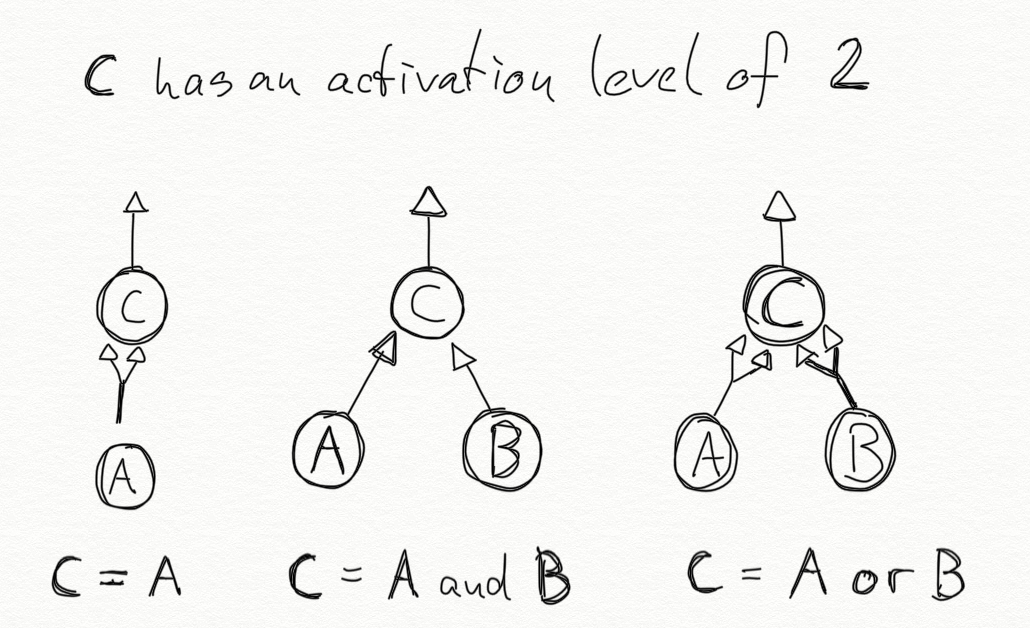 C has an activation level of 2
C
C
C
A
A
B
A
B
C = A
C = A and B
C = A or B